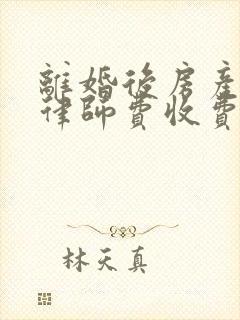 離婚後房產
律師費收費
林天真